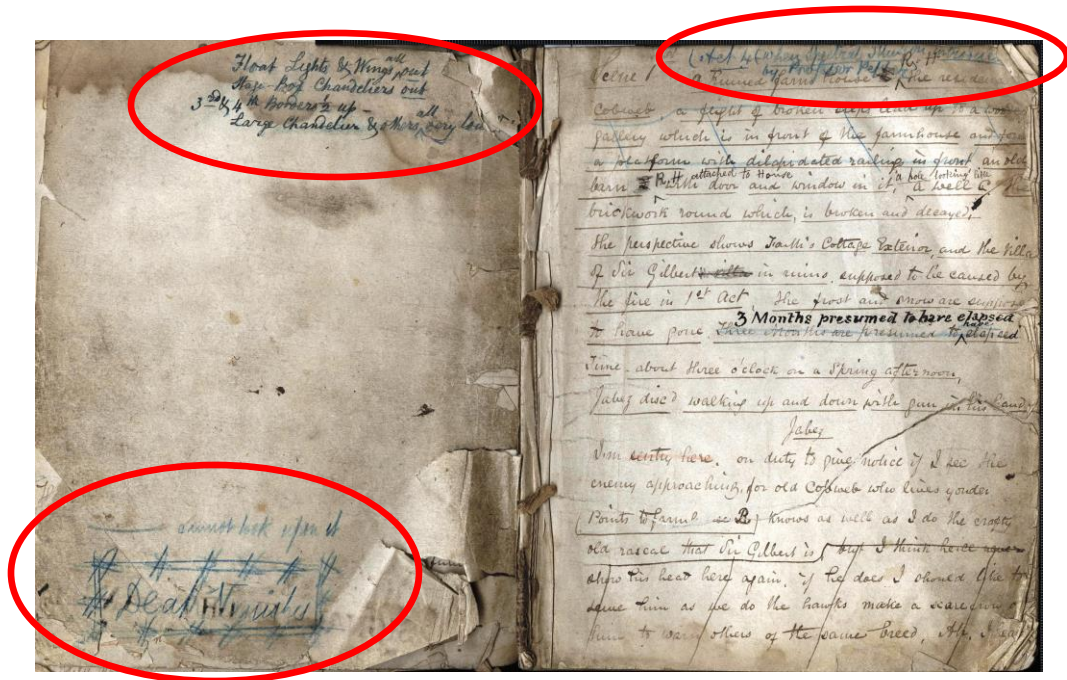 Float Lights & Wings all out
Stage Box Chandeliers out
3rd & 4th Borders ½ up
Large Chandelier & others all very low
cannot look upon it
Dead
turn
(Act 4
by Professor Pepper R.H
Scene 1 A ruined farm house the residence
Cobweb a flight of broken steps lead up to a
gallery which is in front of the farmhouse and
a platform with dilapidated railing in front an old
barn R.H attached to House with door and window in it, a hole looking like a well C, the
brickwork round which, is broken and decayed,
The perspective shows Faith's Cottage Exterior, and the Villa
of Sir Gilbert villa in ruins supposed to be caused by
the fire in 1st Act, The frost and snow are suppose
3 Months presumed to have elapsed
to have gone Three Months are presumed to have elapsed
Time about three o'clock on a Spring afternoon,
Jabez disc'd walking up and down with gun in his hand,
Jabez
I'm sentry here, on duty to give notice if I see the
enemy approaching, for old Cobweb who lives yonder
(Points to farmh se R) knows as well as I do the crafty
old rascal that Sir Gilbert is, but I think he'll never
show his head here again, if he does I should like to
serve him as we do the hawks make a scarecrow o
him to warn others of the same breed, Ah, I